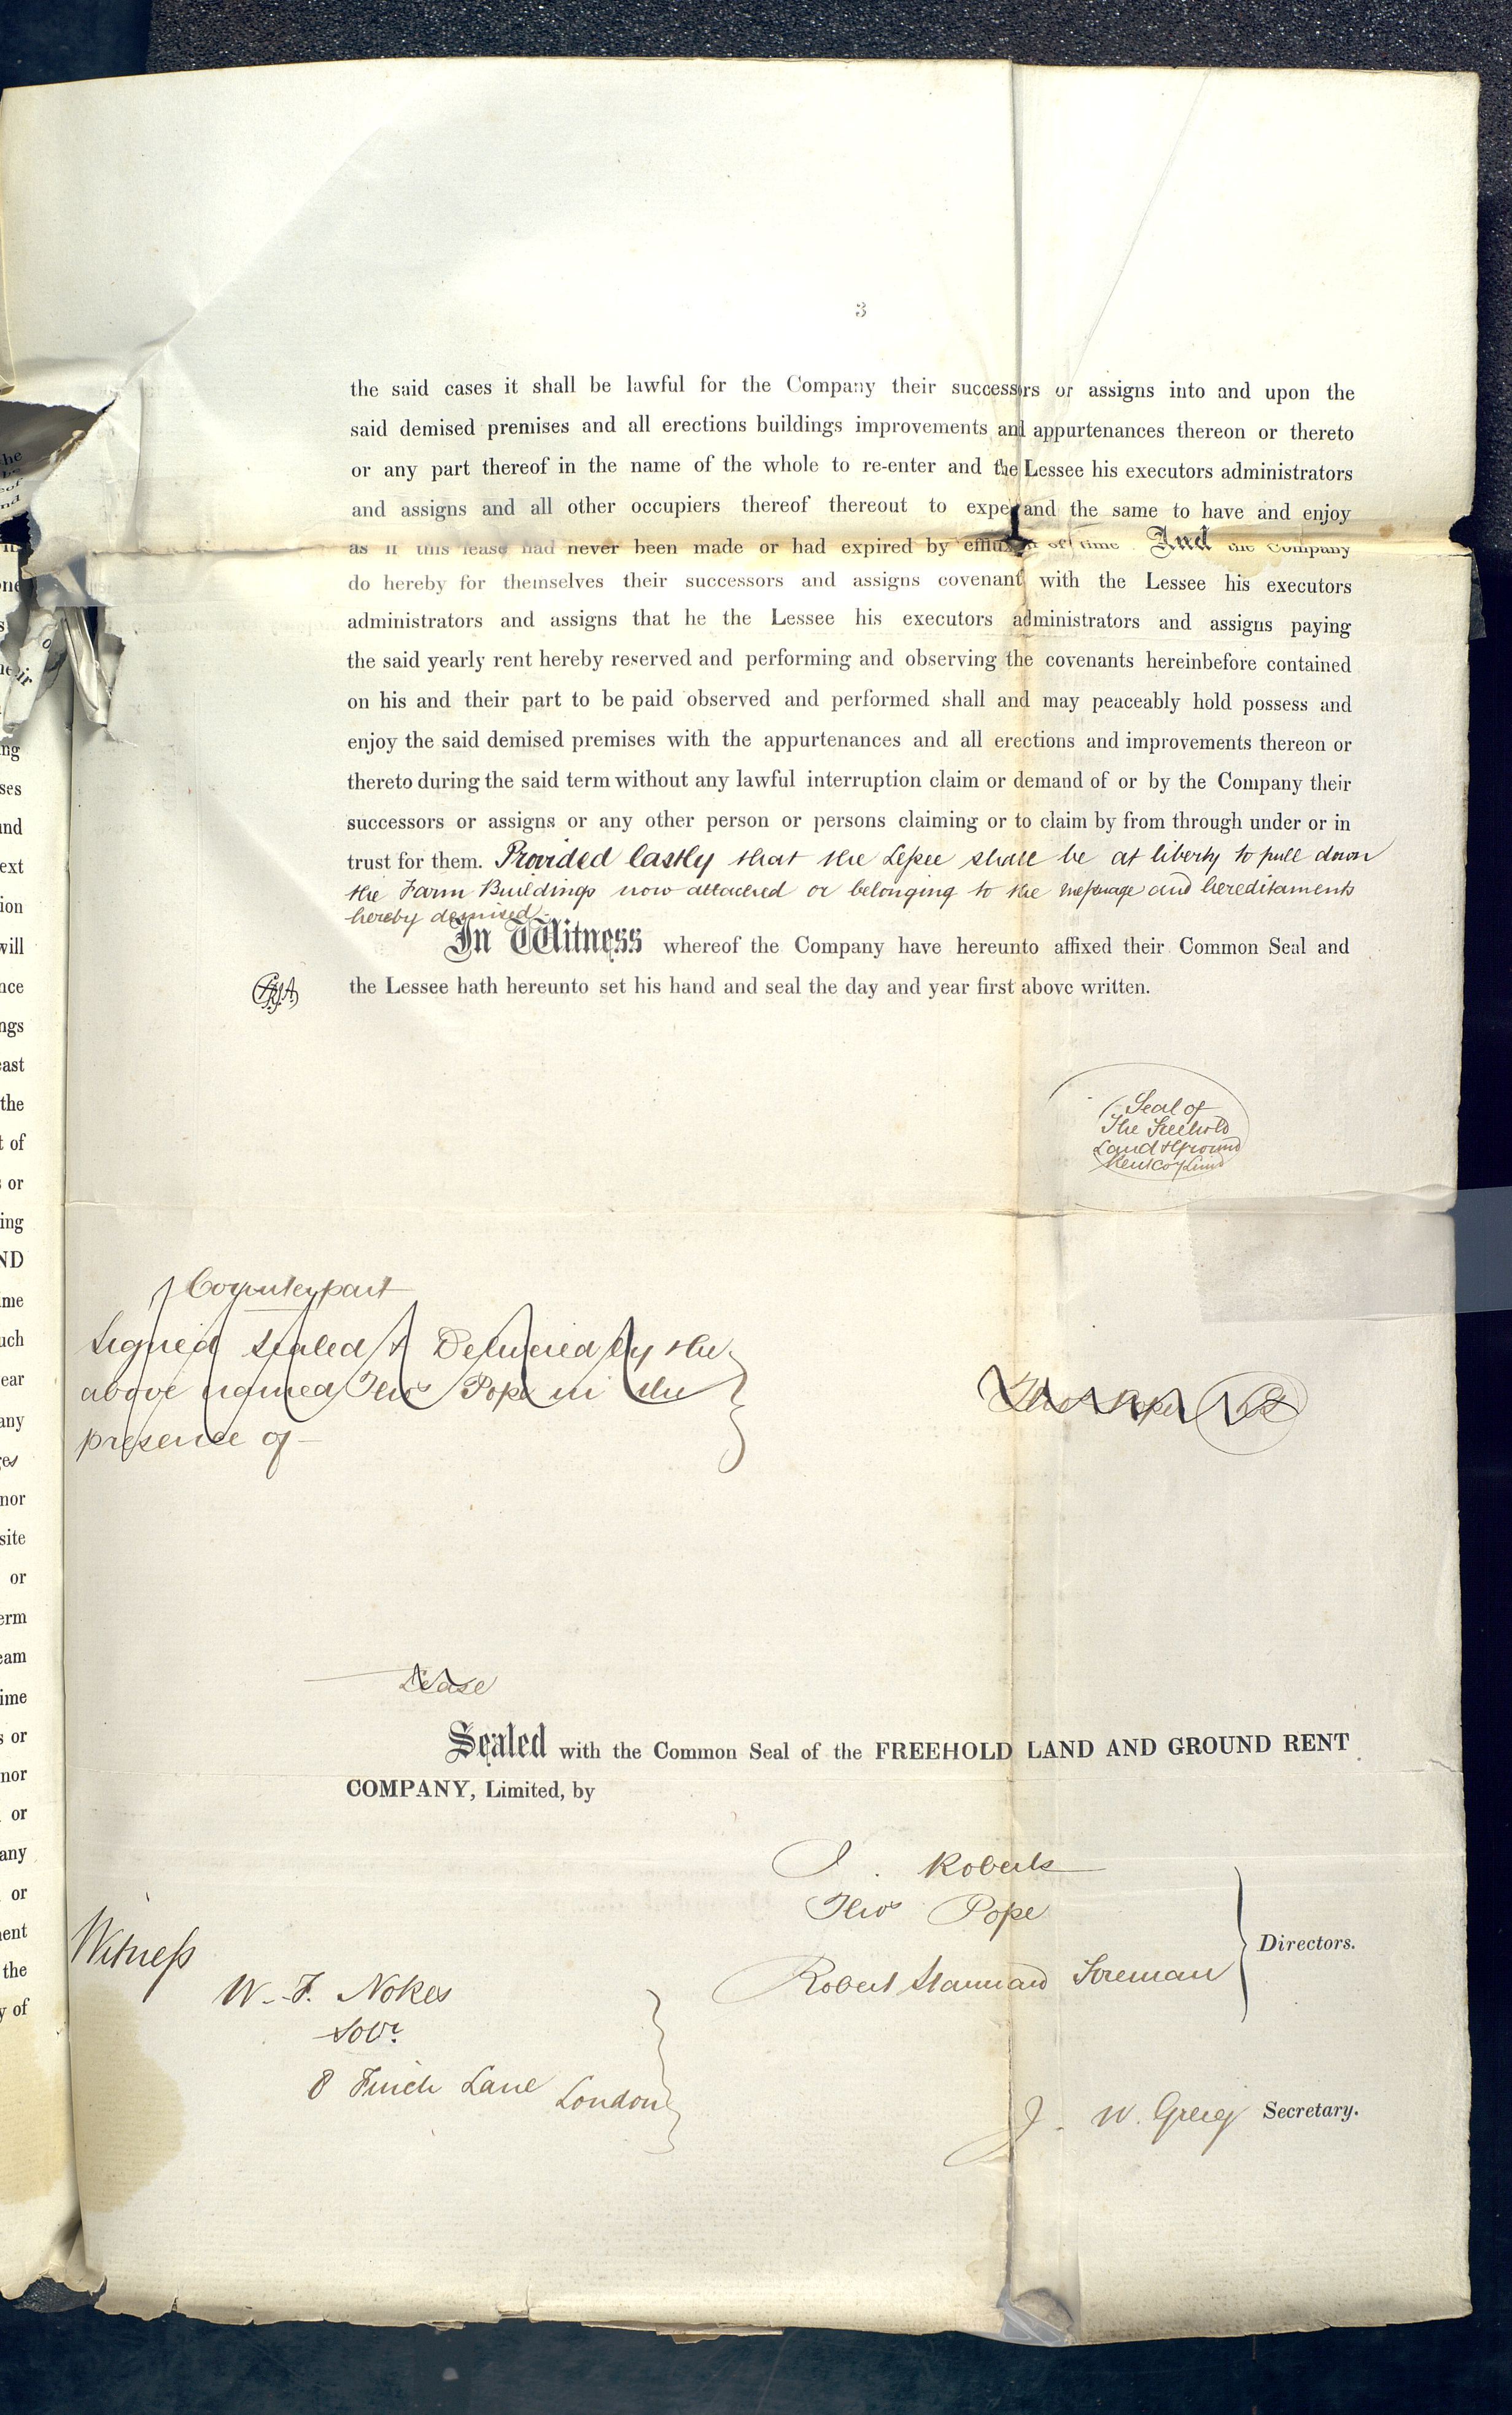 3
the said cases it shall be lawful for the Company their successors or assigns into and upon the
said demised premises and all erections buildings improvements and appurtenances thereon or thereto
or any part thereof in the name of the whole to re-enter and the Lessee his executors administrators
and assigns and all other occupiers thereof thereout to expel and the same to have and enjoy
as if this lease had never been made or had expired by effluxion of time And the Company
do hereby for themselves their successors and assigns covenant with the Lessee his executors
administrators and assigns that he the Lessee his executors administrators and assigns paying
the said yearly rent hereby reserved and performing and observing the covenants hereinbefore contained
on his and their part to be paid observed and performed shall and may peaceably hold possess and
enjoy the said demised premises with the appurtenances and all erections and improvements thereon or
thereto during the said term without any lawful interruption claim or demand of or by the Company their
successors or assigns or any other person or persons claiming or to claim by from through under or in
trust for them. Provided lastly that the Lessee shall be at liberty to pull down
the Farm Buildings now attached or belonging to the messuage and hereditaments
hereby demised.
In Witness whereof the Company have hereunto affixed their Common Seal and
the Lessee hath hereunto set his hand and seal the day and year first above written.
Seal of
The Freehold
Land & Ground
Rent Coy Limd
Counterpart
Signed Sealed & Delivered by the
above named Thos Pope in the
presence of
Thos Pope LS
Lease
Sealed with the Common Seal of the FREEHOLD LAND AND GROUND RENT
COMPANY, Limited, by
J. Roberts
Thos Pope
Robert Stannard Foreman
Directors.
Witness
W. F. Nokes
Solr.
8 Finch Lane London
J. W. Greig Secretary.
ing
ses
and
ext
ion
will
nce
ngs
east
the
t of
s or
ing
ND
ime
uch
ear
any
nor
site
or
erm
eam
ime
s or
nor
or
any
or
ent
the
y of